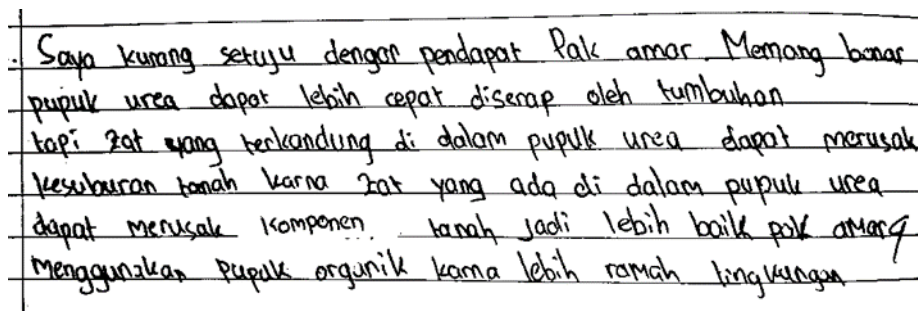 . Saya kurang setuju dengan pendapat Pak amar. Memang benar
pupuk urea dapat lebih cepat diserap oleh tumbuhan
tapi zat yang terkandung di dalam pupuk urea dapat merusak
kesuburan tanah karna zat yang ada di dalam pupuk urea
dapat merusak komponen tanah jadi lebih baik pak amar
menggunakan pupuk organik karna lebih ramah lingkungan